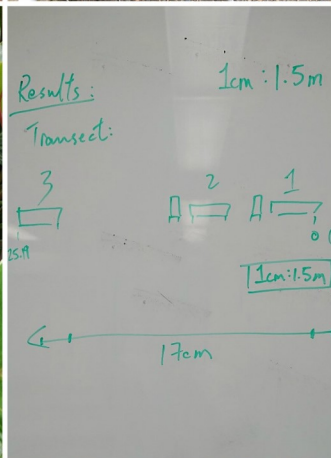 Results: 1cm:1.5m
Transect:
3 2 1
0
1cm:1.5m
17cm